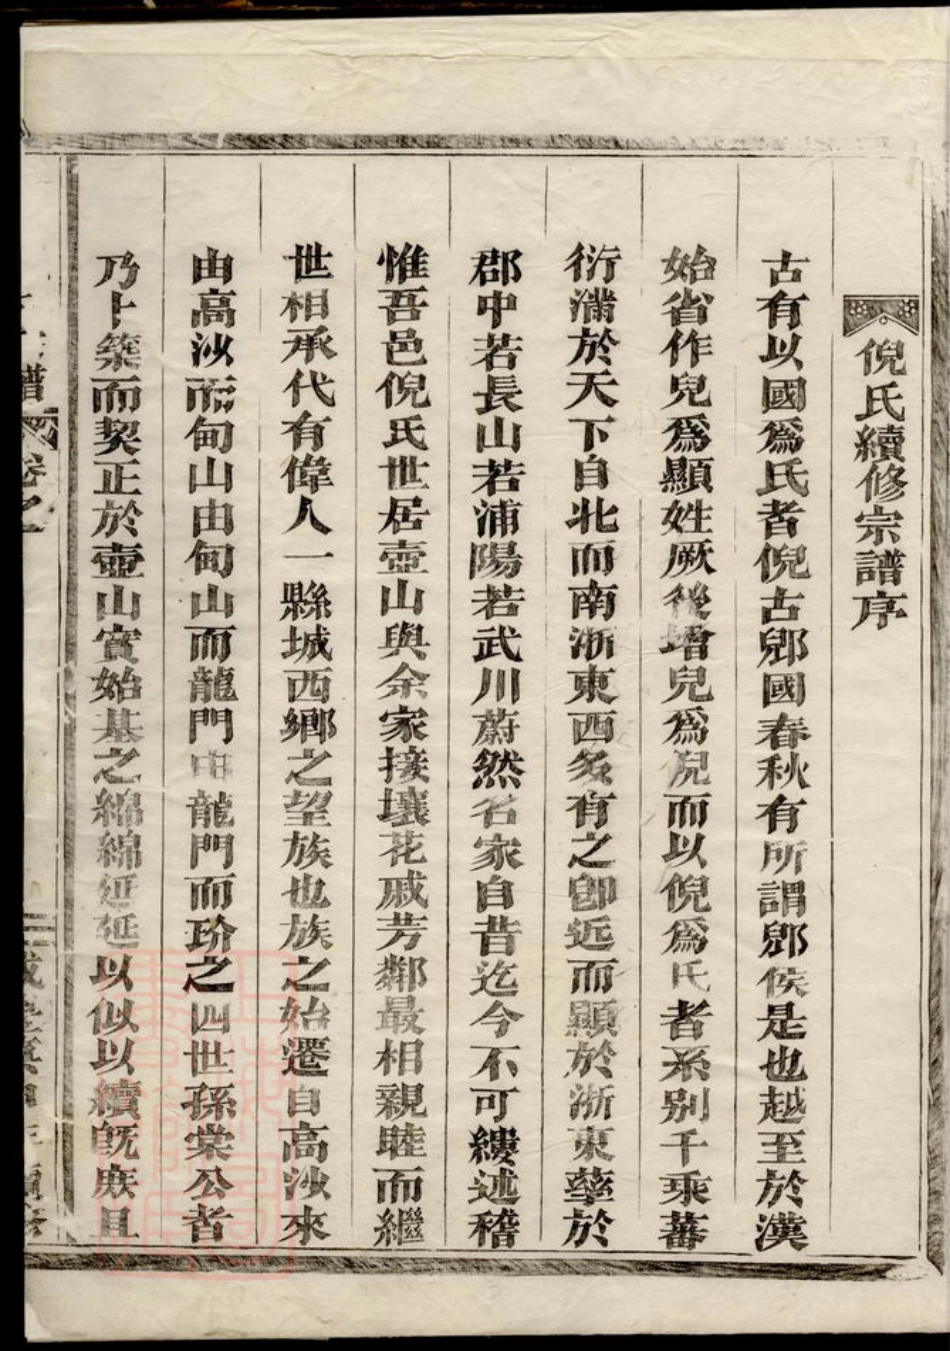 倪氏續修宗譜序
古有以國爲氏者倪古郳國春秋有所謂郳侯是也越至於漢
始省作兒爲顯姓厥後增兒爲倪而以倪爲氏者系别千乘蕃
衍滿於天下自北而南浙東西多有之卽近而顯於浙東婺於
郡中若長山若浦陽若武川蔚然名家自昔迄今不可縷述稽
惟吾邑倪氏世居壺山與余家接壤花戚芳鄰最相親睦而繼
世相承代有偉人一縣城西鄉之望族也族之始遷自高沙來
由高沙而甸山由甸山而龍門由龍門而玠之四世孫棠公者
乃卜築而契正於壺山實始基之綿綿延延以似以續旣庶且
譜 卷之